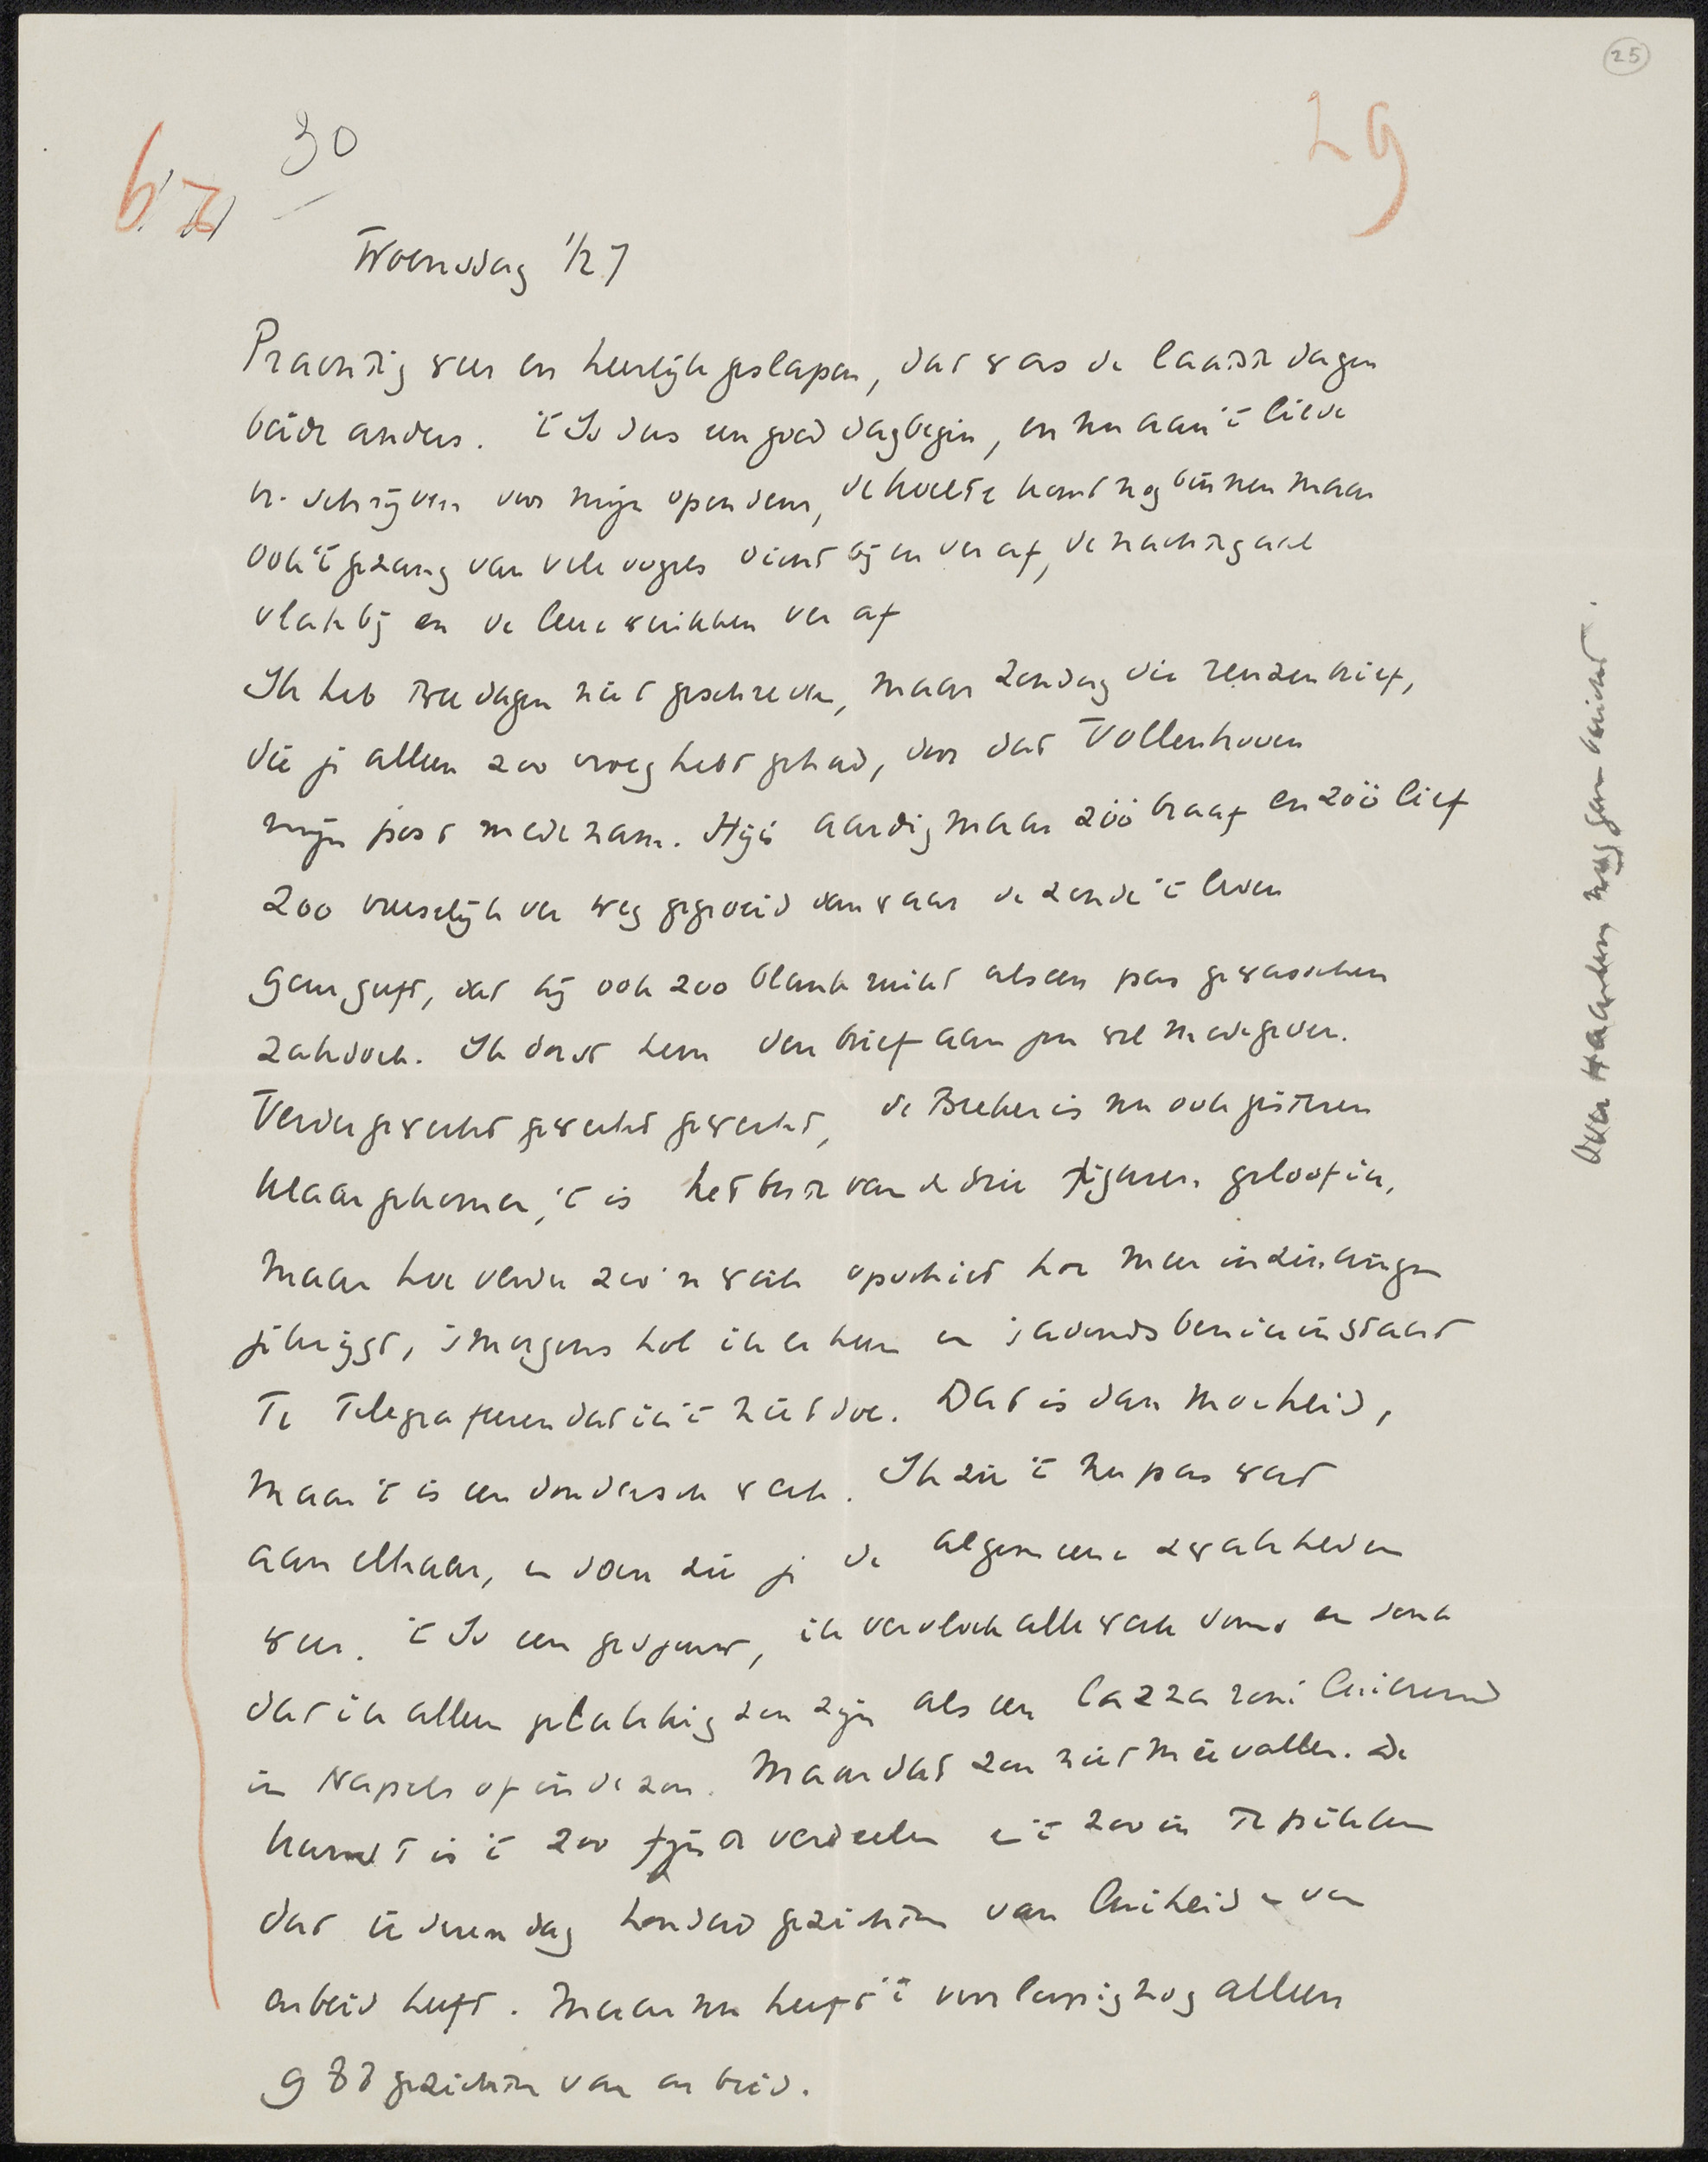 25
30
29
Woensdag 1/2 7
Prachtig weer en heerlijk geslapen, dat was de laatste dagen
beide anders. 't Is dus een goed dagbegin, en nu aan 't lieve
br. schrijven voor mijn open deur, de koelte komt nog binnen maar
ook 't gezang van vele vogels dicht bij en ver af, de nachtegaal
vlak bij en de leeuweriken ver af
Ik heb twee dagen niet geschreven, maar Zondag die reuzenbrief,
die je alleen zoo vroeg hebt gehad, door dat Vollenhoven
mijn post medenam. Hij is aardig maar zóó braaf en zóó lief
zoo vreeselijk ver weg gegroeid van waar de zonde 't leven
gaur geeft, dat hij ook zoo blank ruikt als een pas gewasschen
zakdoek. Ik dorst hem den brief aan jou wel medegeven.
Verder gewerkt gewerkt gewerkt, de Beeker is nu ook gisteren
klaargekomen, 't is het beste van de drie figuren geloof ik,
maar hoe verder zoo'n werk opschiet hoe meer inzinkingen
je krijgt, 's morgens hol ik er heen en 's avonds ben ik in staat
te telegrafeeren dat ik 't niet doe. Dat is dan moeheid,
maar 't is een dondersch werk. Ik zie 't nu pas wat
aan elkaar, en dan zie je de algemeene zwakheden
weer. 't Is een gedonder, ik vervloek alle werk soms en denk
dat ik alleen gelukkig zou zijn als een lazzaroni luierend
in Napels of in de zon. Maar dat zou niet meevallen. De
kunst is 't zoo fijn te verdeelen en 't zoo in te pikken
dat iederen dag honderd gezichten van luiheid en van
arbeid heeft. Maar nu heeft 't voorloopig nog alleen
988 gezichten van arbeid.
over Haarlem nog geen bericht.